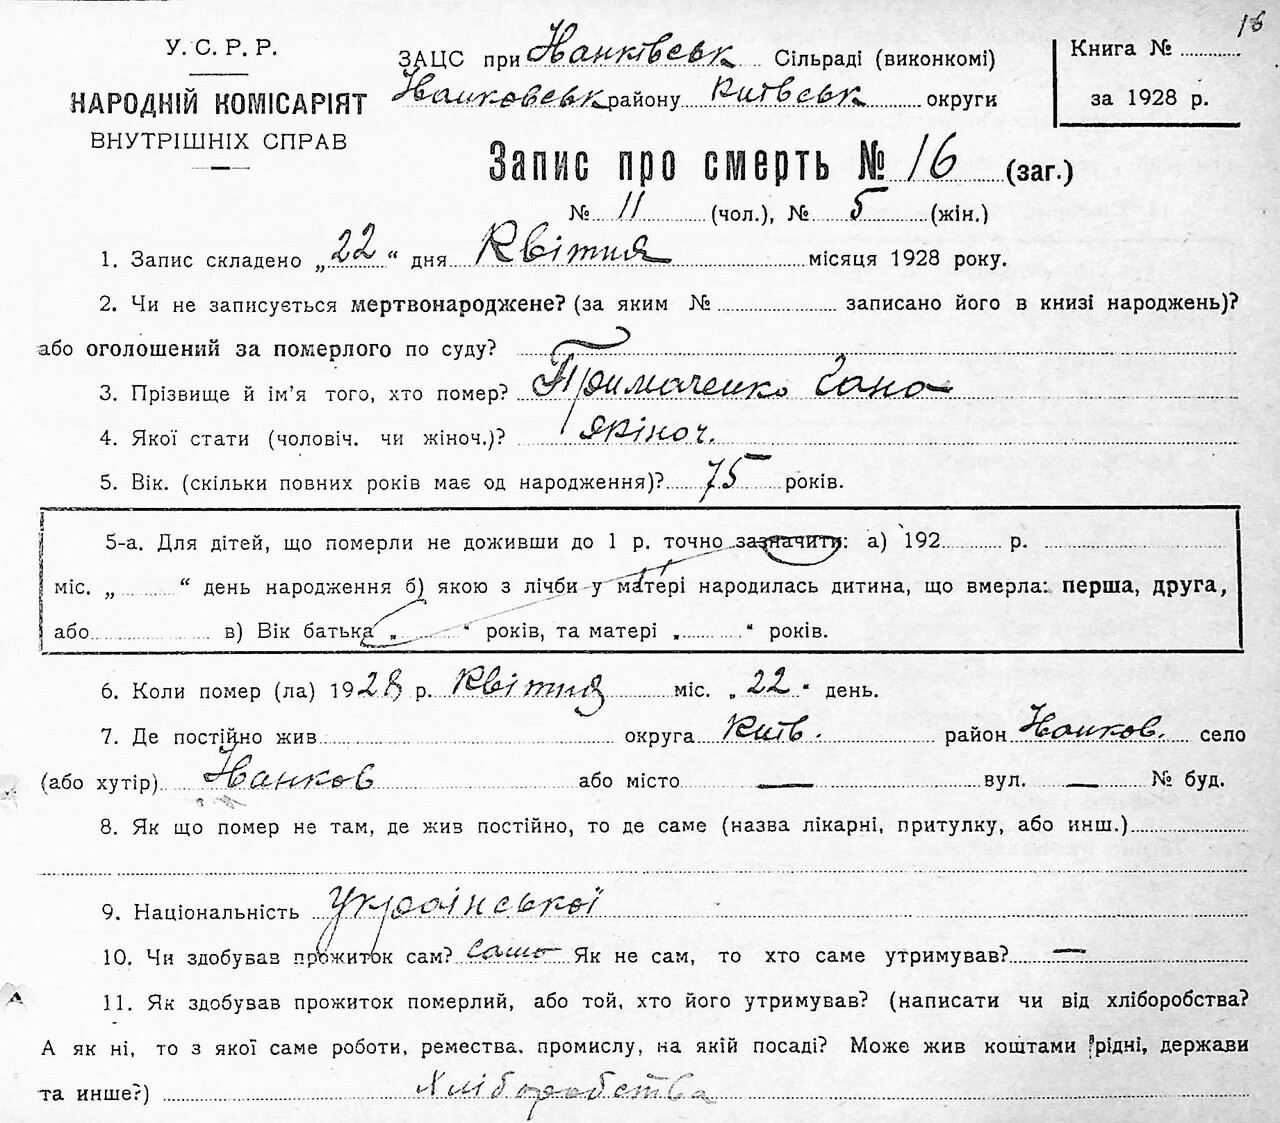 16
У. С. Р. Р.
НАРОДНІЙ КОМІСАРІЯТ
ВНУТРІШНІХ СПРАВ
ЗАЦС при Нанківськ Сільраді (виконкомі)
Нанковськ району Київськ округи
Книга №
за 1928 р.
Запис про смерть № 16 (заг.)
№ 11 (чол.), № 5 (жін.)
1. Запис складено „22“ дня Квітня місяця 1928 року.
2. Чи не записується мертвонароджене? (за яким № записано його в книзі народжень)?
або оголошений за померлого по суду?
3. Прізвище й ім’я того, хто помер? Примаченко
4. Якої стати (чоловіч. чи жіноч.)? жіноч.
5. Вік. (скільки повних років має од народження)? 75 років.
5-а. Для дітей, що померли не доживши до 1 р. точно зазначити: а) 192 р.
міс. „ “ день народження б) якою з лічби у матері народилась дитина, що вмерла: перша, друга,
або в) Вік батька „ “ років, та матері „ “ років.
6. Коли помер (ла) 1928 р. Квітня міс. „22“ день.
7. Де постійно жив округа Київ. район Нанков. село
(або хутір) Нанков або місто — вул. — № буд.
8. Як що помер не там, де жив постійно, то де саме (назва лікарні, притулку, або инш.)
9. Національність Української
10. Чи здобував прожиток сам? само Як не сам, то хто саме утримував? —
11. Як здобував прожиток померлий, або той, хто його утримував? (написати чи від хліборобства?
А як ні, то з якої саме роботи, ремества, промислу, на якій посаді? Може жив коштами рідні, держави
та инше?) Хліборобства